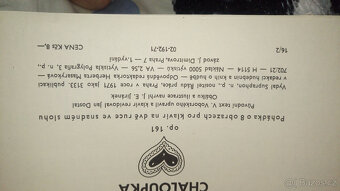 CHALOUPKA
op. 161
Pohádka o 8 obrazech pro klavír na dvě ruce ve snadném slohu
Původní text V. upravil klavír revidoval Jan Dostal
Obálku a ilustrace navrhl J. Jiránek
Vydal Supraphon, n. p., nositel Řádu práce, Praha v roce 1971 jako 3133. publikaci
v redakci hudebnin a knih o hudbě - Odpovědná redaktorka Herberta Masaryková
702/21 - H 5114 - Náklad 5000 výtisků - VA 2,56 - Vytiskla Polygrafia 3, n. p.,
závod J. Dimitrova, Praha 7 - 1. vydání
16/2 02-192-71 CENA Kčs 8,—